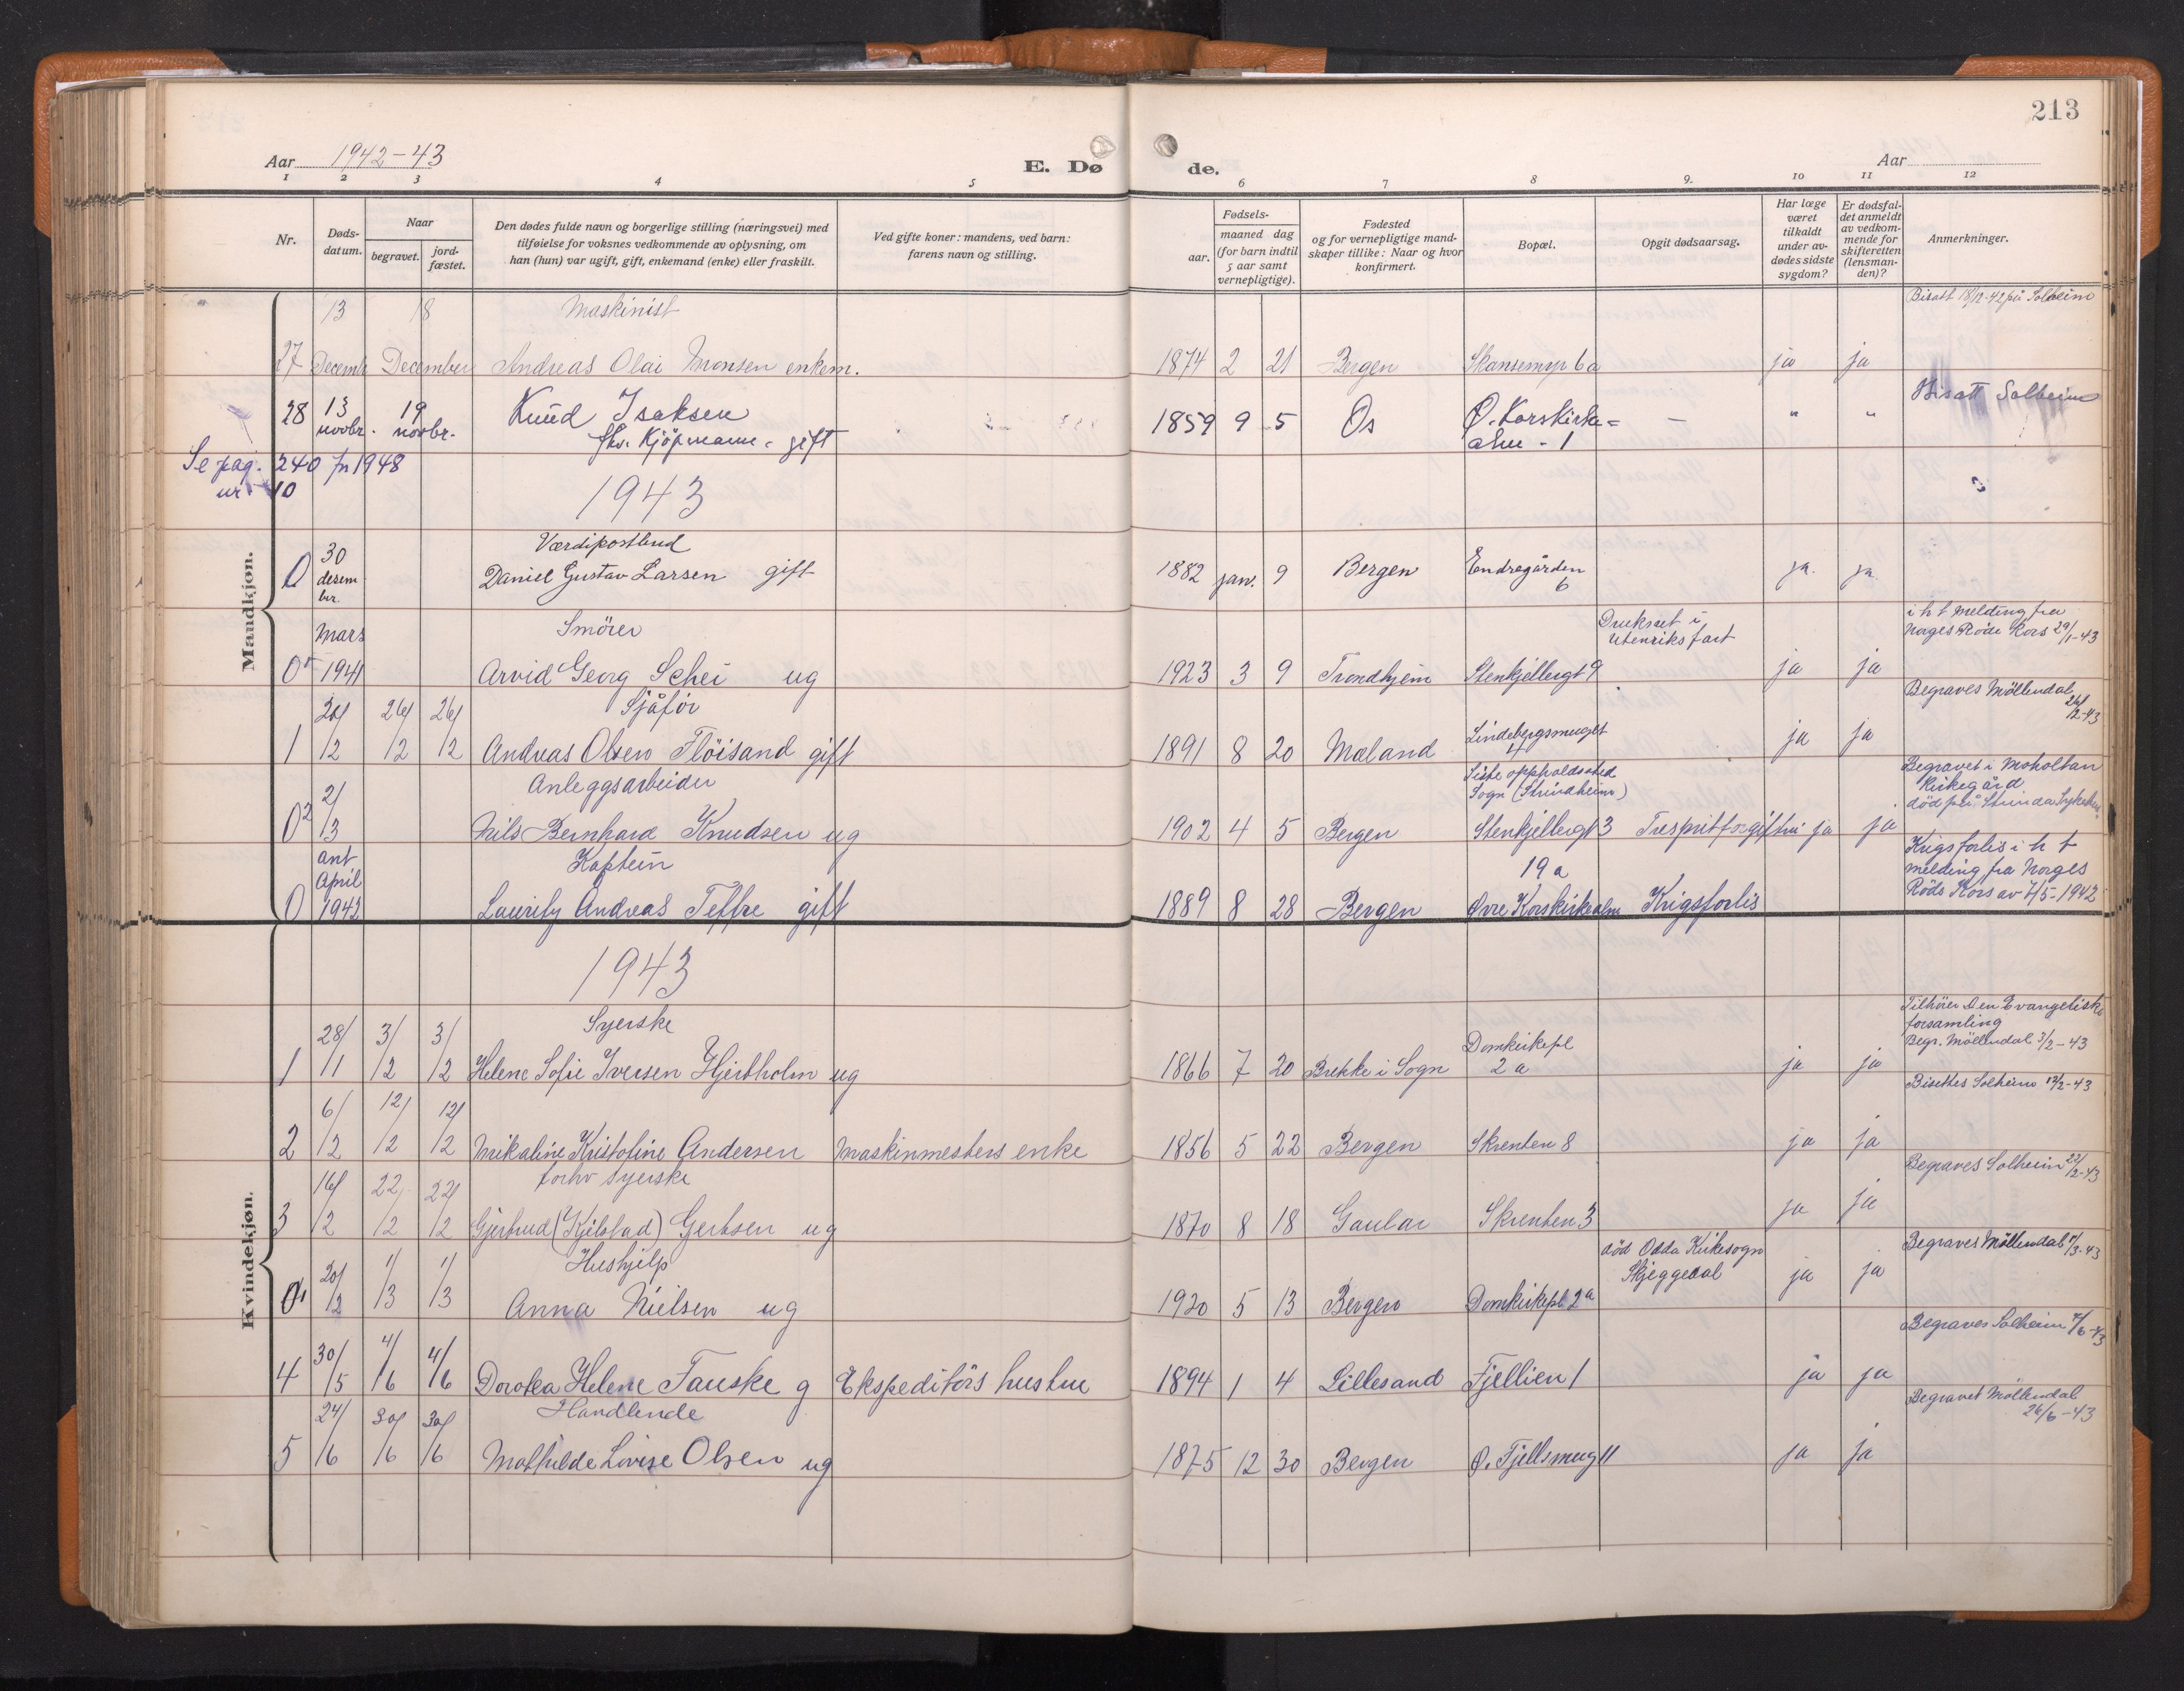 213
Aar 1942-43
E. Dø
de.
Aar
1 2 3 4 5 6 7 8 9. 10 11 12
Nr.
Døds-
datum.
Naar
begravet.
jord-
fæstet.
Den dødes fulde navn og borgerlige stilling (næringsvei) med
tilføielse for voksnes vedkommende av oplysning, om
han (hun) var ugift, gift, enkemand (enke) eller fraskilt.
Ved gifte koner: mandens, ved barn:
farens navn og stilling.
Fødsels-
aar.
maaned dag
(for barn indtil
5 aar samt
vernepligtige).
Fødested
og for vernepligtige mand-
skaper tillike: Naar og hvor
konfirmert.
Bopæl.
Opgit dødsaarsag.
Har læge
været
tilkaldt
under av-
dødes sidste
sygdom?
Er dødsfal-
det anmeldt
av vedkom-
mende for
skifteretten
(lensman-
den)?
Anmerkninger.
Mandkjøn.
13 18 Maskinist Bisatt 18/12-42 på Solheim
27 Decembr December Andreas Olai Monsen enkem. 1874 2 21 Bergen Skansemyr 6a ja ja
28 13 19 Knud Isaksen 1859 9 5 Os Ø. Korskirke= — " " Bisatt Solheim
novbr. novbr. fhv. Kjöpmann - gift alm - 1
Se pag. 240 for 1948
nr 10
1943
30 Værdipostbud
0 desem Daniel Gustav Larsen gift 1882 jan. 9 Bergen Endregården ja. ja
br. 6
Mars Smörer Druknet i i h t melding fra
utenriksfart Norges Röde Kors 29/1-43
0 1941 Arvid Georg Schei ug 1923 3 9 Trondhjem Stenkjellergt 9 ja ja
20/ 26/ 26/ Sjåför Begraves Möllendal
26/2-43
1 /2 /2 /2 Andreas Olsen Flöisand gift 1891 8 20 Mæland Lindebergsmuget ja ja
4
2/ Anleggsarbeider Siste oppholdssted Begravet i Moholtan
Sogn (Strindheim) Kirkegård
död på Strinda Sykehus
0² /3 Nils Bernhard Knudsen ug 1902 4 5 Bergen Stenkjellergt 3 Trespritforgiftn. ja ja
ant Kaptein 19 a Krigsforlis i h t
April melding fra Norges
0 1942 Lauritz Andreas Teffre gift 1889 8 28 Bergen Øvre Korskirkealm Krigsforlis Röde Kors av 7/5-1942
Kvindekjøn.
1943
28/ 3/ 3/ Syerske Domkirkepl Tilhörer Den Evangeliske
forsamling
Begr. Möllendal 3/2-43
1 /1 /2 /2 Helene Sofie Iversen Hjertholm ug 1866 7 20 Brekke i Sogn 2 a ja ja
6/ 12/ 12/ Bisettes Solheim 12/2-43
2 /2 /2 /2 Mikaline Kristoline Andersen Maskinmesters enke 1856 5 22 Bergen Skrenten 8 ja ja
16/ 22/ 22/ forhv syerske Begraves Solheim 22/2-43
3 /2 /2 /2 Gjertrud (Kjelstad) Gjertsen ug 1870 8 18 Gaular Skrenten 3 ja ja
20/ 1/ 1/ Hushjelp död Odda Kirkesogn Begraves Möllendal 1/3-43
Skjeggedal
0¹ /2 /3 /3 Anna Nielsen ug 1920 5 13 Bergen Domkirkepl. 2a ja ja
30/ 4/ 4/ Begraves Solheim 4/6-43
4 /5 /6 /6 Dorotea Helene Fauske g Ekspeditörs hustru 1894 1 4 Lillesand Fjellien 1 ja ja
24/ 30/ 30/ Handlende Begravet Möllendal
26/6-43
5 /6 /6 /6 Mathilde Lovise Olsen ug 1875 12 30 Bergen Ø. Fjellsmug 11 ja ja